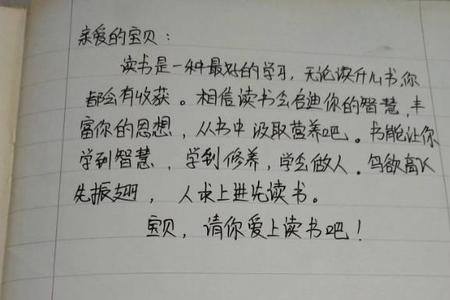 亲爱的宝贝：
读书是一种最好的学习，无论读什么书，你
都会有收获。相信读书会启迪你的智慧，丰
富你的思想，从书中汲取营养吧。书能让你
学到智慧，学到修养，学会做人。鸟欲高飞
先振翅，人求上进先读书。
宝贝，请你爱上读书吧！